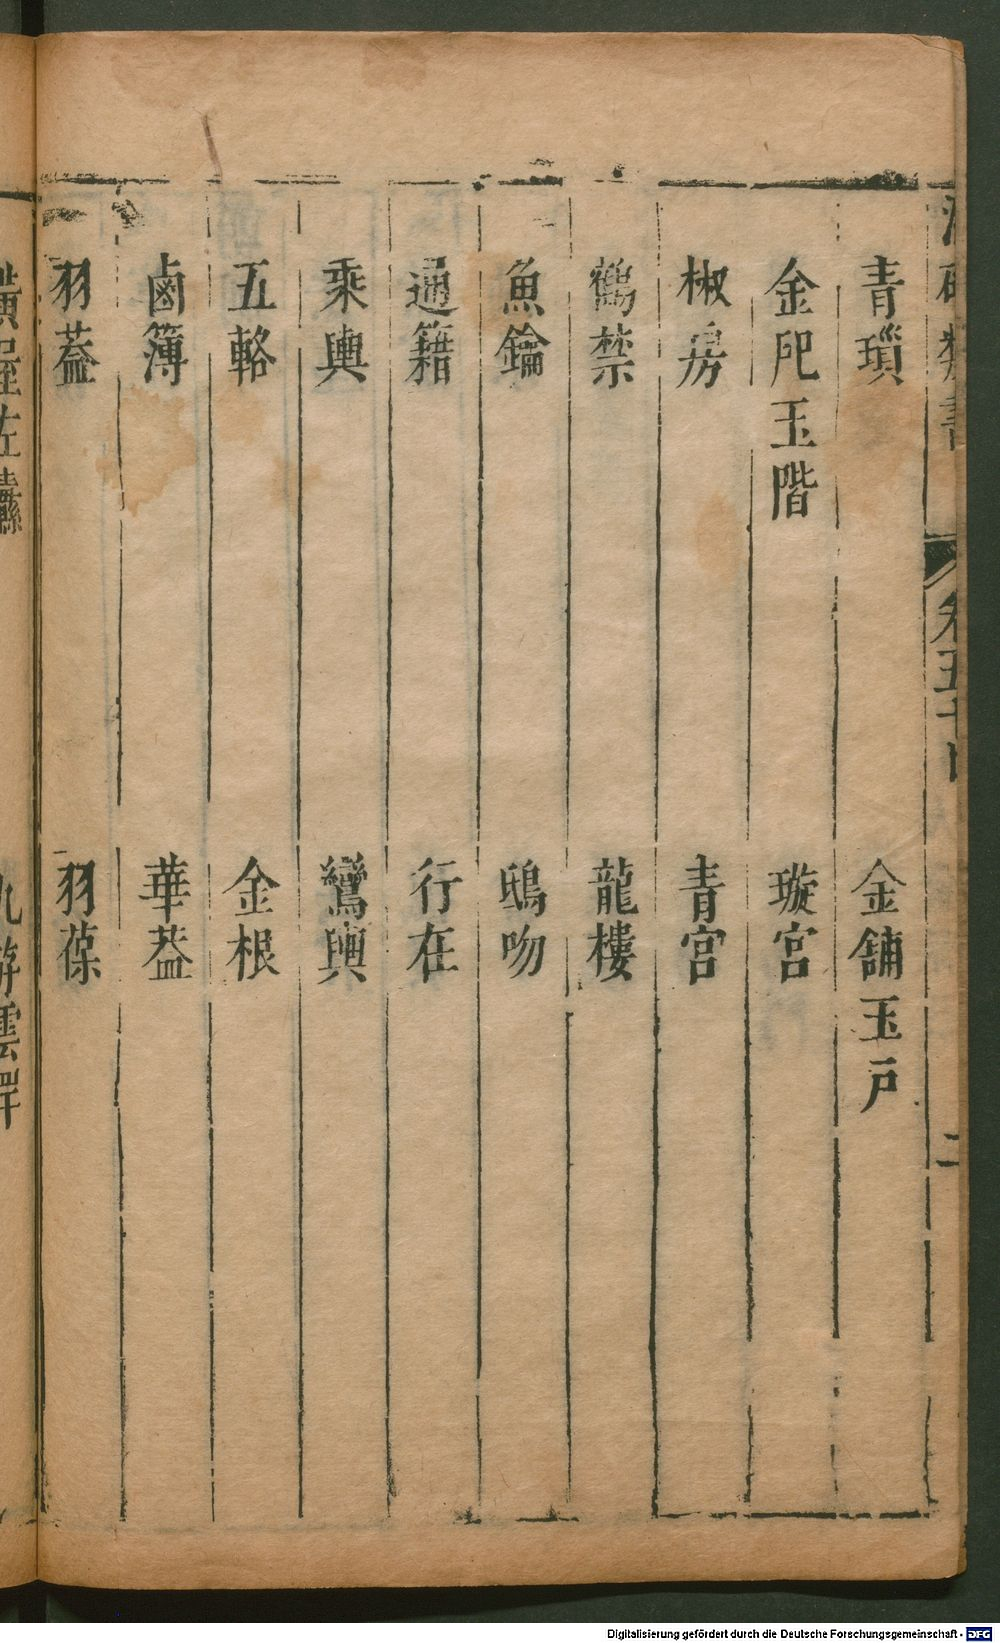 青瑣　金鋪玉戶
金戺玉階　璇宮
椒房　青宮
鶴禁　龍樓
魚鑰　鴟吻
通籍　行在
乘輿　鸞輿
五輅　金根
鹵簿　華葢
羽葢　羽葆
黃屋左纛　九斿雲罕
Digitalisierung gefördert durch die Deutsche Forschungsgemeinschaft - DFG